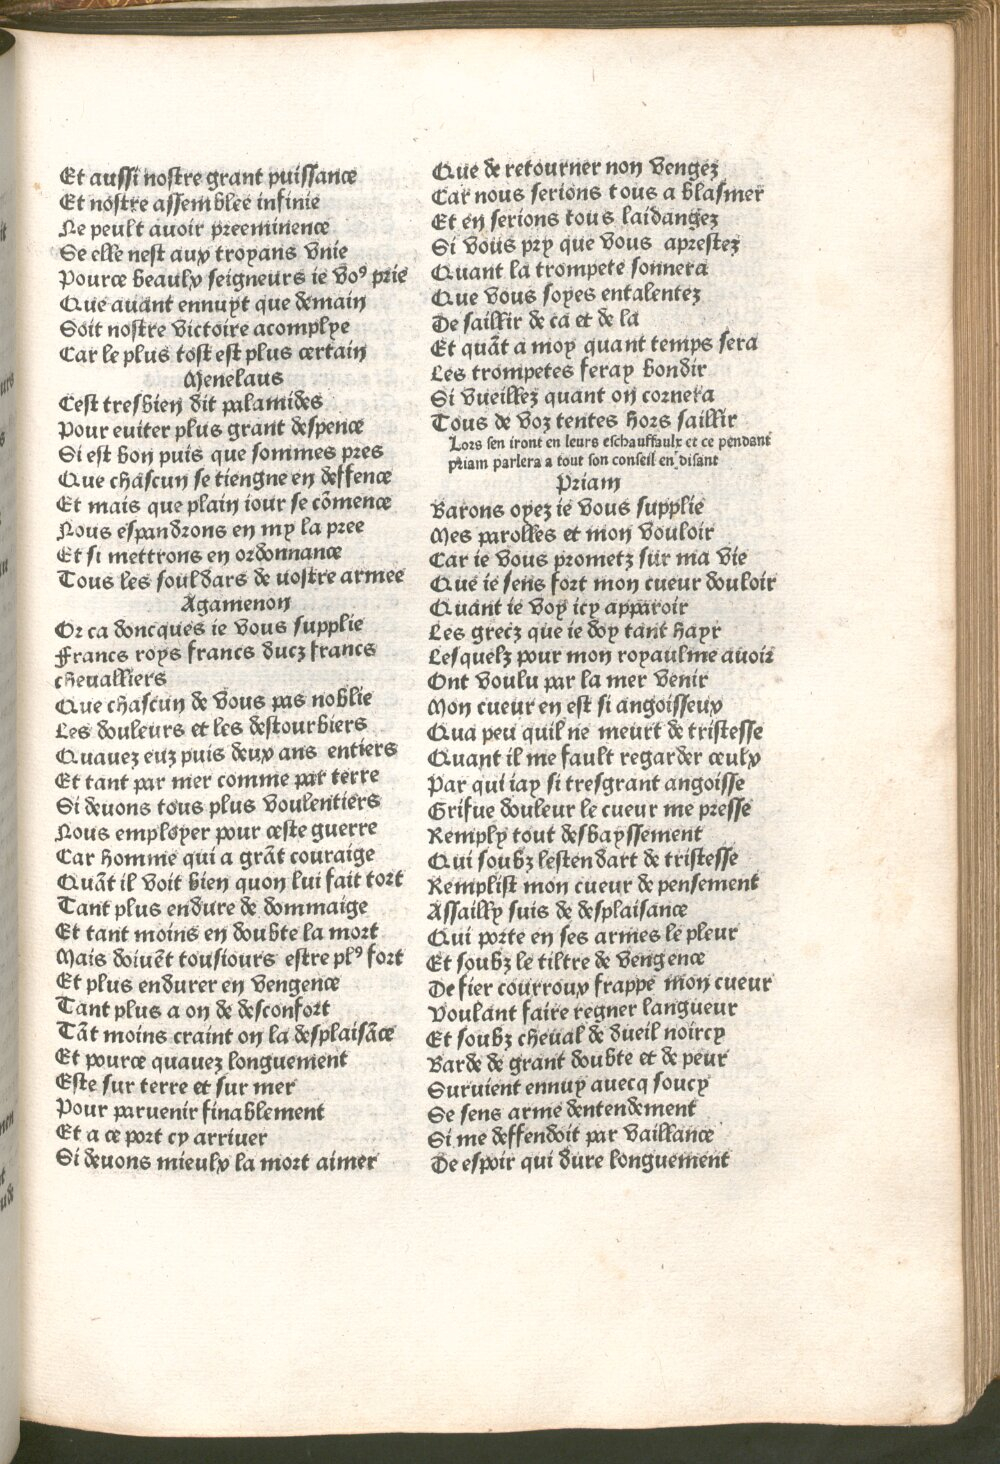 Et aussi nostre grant puissance
Et nostre assemblee infinie
Ne peult auoir preeminence
Se elle nest aux troyans vnie
Pource beaulx seigneurs ie voꝰ prie
Que auant ennuyt que demain
Soit nostre victoire acomplye
Car le plus tost est plus certain
Menelaus
Cest tresbien dit palamides
Pour euiter plus grant despence
Si est bon puis que sommes pres
Que chascun se tiengne en deffence
Et mais que plain iour se cõmence
Nous espandrons en my la pree
Et si mettrons en ordonnance
Tous les souldars de nostre armee
Agamenon
Or ca doncques ie vous supplie
Francs roys francs ducz francs
cheualliers
Que chascun de vous pas noblie
Les douleurs et les destourbiers
Quauez euz puis deux ans entiers
Et tant par mer comme par terre
Si deuons tous plus voulentiers
Nous employer pour ceste guerre
Car homme qui a grãt couraige
Quãt il voit bien quon lui fait tort
Tant plus endure de dommaige
Et tant moins en doubte la mort
Mais doiuẽt tousiours estre plꝰ fort
Et plus endurer en vengence
Tant plus a on de desconfort
Tãt moins craint on la desplaisãce
Et pource quauez longuement
Este sur terre et sur mer
Pour paruenir finablement
Et a ce port cy arriuer
Si deuons mieulx la mort aimer
Que de retourner non vengez
Car nous serions tous a blasmer
Et en serions tous laidangez
Si vous pry que vous aprestez
Quant la trompete sonnera
Que vous soyes entalentez
De saillir de ca et de la
Et quãt a moy quant temps sera
Les trompetes feray bondir
Si vueillez quant on cornera
Tous de voz tentes hors saillir
Lors sen iront en leurs eschauffaulx et ce pendant
priam parlera a tout son conseil en disant
Priam
Barons oyez ie vous supplie
Mes parolles et mon vouloir
Car ie vous prometz sur ma vie
Que ie sens fort mon cueur douloir
Quant ie voy icy apparoir
Les grecz que ie doy tant hayr
Lesquelz pour mon royaulme auoir
Ont voulu par la mer venir
Mon cueur en est si angoisseux
Qua peu quil ne meurt de tristesse
Quant il me fault regarder ceulx
Par qui iay si tresgrant angoisse
Grifue douleur le cueur me presse
Remply tout desbayssement
Qui soubz lestendart de tristesse
Remplist mon cueur de pensement
Assailly suis de desplaisance
Qui porte en ses armes le pleur
Et soubz le tiltre de vengence
De fier courroux frappe mon cueur
Voulant faire regner langueur
Et soubz cheual de dueil noircy
Barde de grant doubte et de peur
Suruient ennuy auecq soucy
Se sens arme dentendement
Si me deffendoit par vaillance
De espoir qui dure longuement